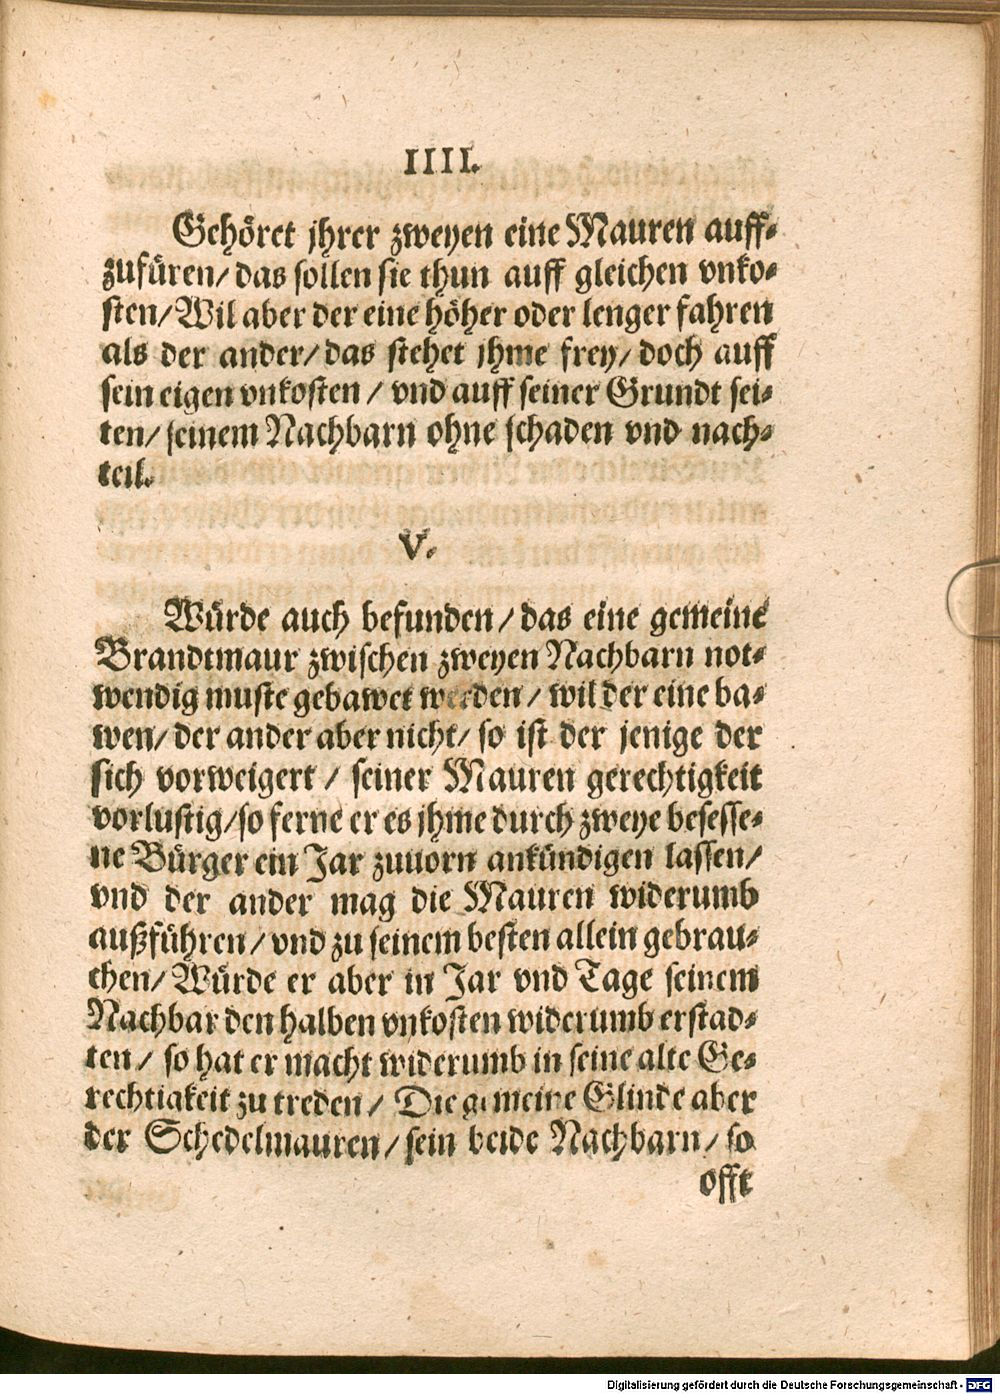 IIII.
Gehöret jhrer zweyen eine Mauren auff-
zufüren/ das sollen sie thun auff gleichen vnko-
sten/ Wil aber der eine höher oder lenger fahren
als der ander/ das stehet jhme frey/ doch auff
sein eigen vnkosten / vnd auff seiner Grundt sei-
ten/ seinem Nachbarn ohne schaden vnd nach-
teil.
V.
Würde auch befunden/ das eine gemeine
Brandtmaur zwischen zweyen Nachbarn not-
wendig muste gebawet werden/ wil der eine ba-
wen/ der ander aber nicht/ so ist der jenige der
sich vorweigert / seiner Mauren gerechtigkeit
vorlustig/ so ferne er es jhme durch zweye besesse-
ne Bürger ein Jar zuuorn ankündigen lassen/
vnd der ander mag die Mauren widerumb
außführen/ vnd zu seinem besten allein gebrau-
chen/ Würde er aber in Jar vnd Tage seinem
Nachbar den halben vnkosten widerumb erstad-
ten/ so hat er macht widerumb in seine alte Ge-
rechtigkeit zu treden/ Die gemeine Glinde aber
der Schedelmauren/ sein beide Nachbarn/ so
offt
Digitalisierung gefördert durch die Deutsche Forschungsgemeinschaft - DFG